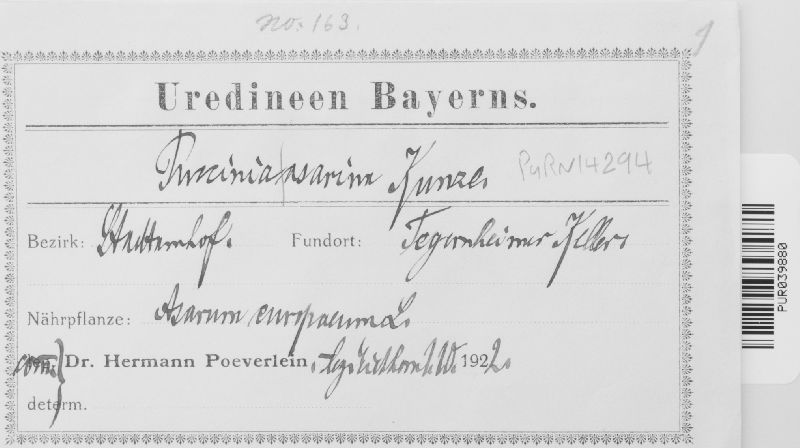 no. 163.
Uredineen Bayerns.
Puccinia asarina Kunze. PURN14294
Bezirk: Stadtamhof. Fundort: Tegernheimer Keller.
Nährpflanze: Asarum europaeum L.
com. Dr. Hermann Poeverlein, leg. 1922.
determ.
PUR039880